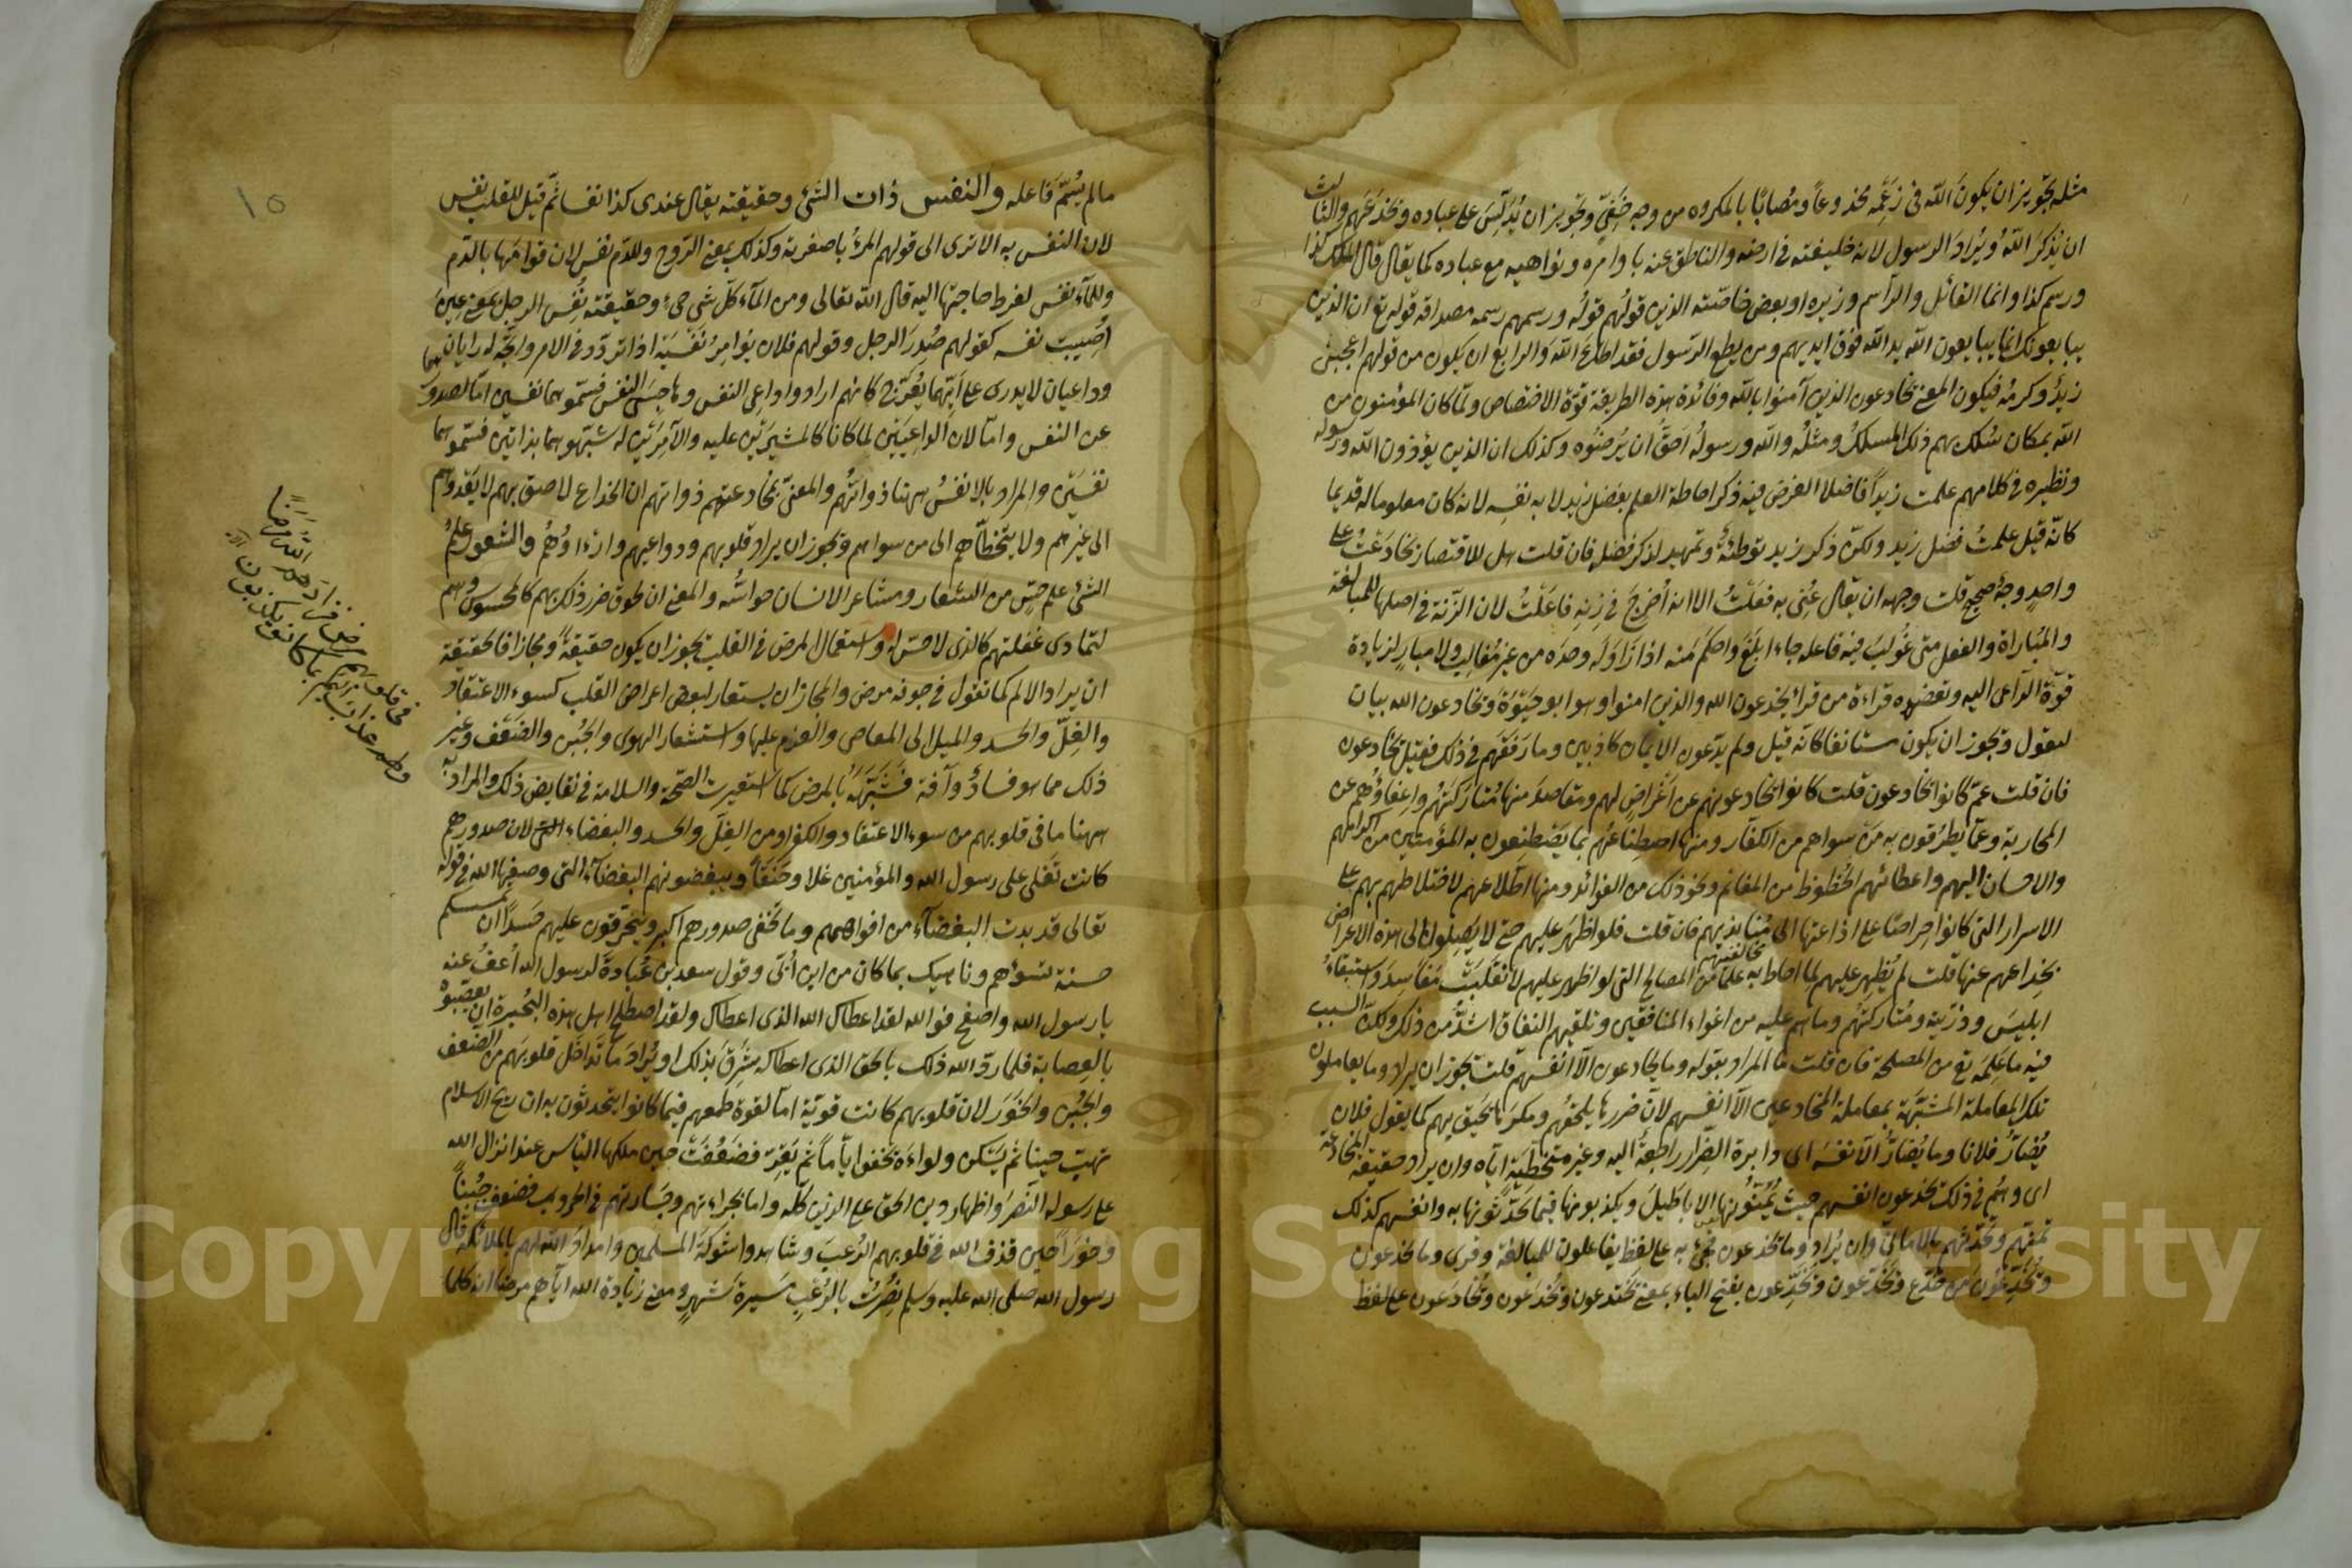 مثله تجويز ان يكون الله في زعمه مخدوعاً ومصاباً بالمكروه من وجه خفيّ وتجويز ان يُدلّس على عباده ويخدعهم والثالث
ان يُذكر الله ويُراد الرسول لانه خليفته في ارضه والناطق عنه باوامره ونواهيه مع عباده كما يقال قال الملك كذا
ورسم كذا وانما القائل والراسم وزيره او بعض خاصّته الذين قولهم قوله ورسمهم رسمه مصداقه قوله تع ان الذين
يبايعونك انما يبايعون الله يد الله فوق ايديهم ومن يطع الرسول فقد اطاع الله والرابع ان يكون من قولهم اعجبني
زيدٌ وكرمُه فيكون المعنى يخادعون الذين آمنوا بالله وفائدة هذه الطريقة قوّة الاختصاص ولمّا كان المؤمنون من
الله بمكان سُلك بهم ذلك المسلكُ ومثلُه والله ورسولُه احقّ ان يُرضُوه وكذلك ان الذين يؤذون الله ورسوله
ونظيره في كلامهم علمت زيداً فاضلا الغرض فيه ذكر احاطة العلم بفضل زيد لا به نفسِه لانه كان معلوما له قديما
كانّه قيل علمتُ فضل زيد ولكن ذكر زيد توطئةٌ وتمهيد لذكر فضله فان قلت هل للاقتصار بخادعتُ على
واحدٍ وجهٌ صحيح قلت وجهه ان يقال عُنِي به فَعَلْتُ الا انه أُخرج في زِنةِ فاعَلْتُ لان الزنة في اصلها للمبالغة
والمباراة والفعل متى غُولِبَ فيه فاعله جاء ابلغَ واحكمَ منه اذا زاوله وحده من غير مُغالِبٍ ولا مبارٍ لزيادة
قوّة الداعى اليه ويعضده قراءة من قرأ يخدعون الله والذين امنوا وهو ابو حيوة ويخادعون الله بيان
ليقول ويجوز ان يكون مستانفا كانّه قيل ولم يدّعون الايمان كاذبين وما رَفقُهم في ذلك فقيل يخادعون
فان قلت عمّ كانوا يخادعون قلت كانوا يخادعونهم عن اغراضٍ لهم ومقاصدَ منها مُتاركتُهم واعفاؤُهم عن
المحاربة وعمّا يطرُقون به مَن سواهم من الكفّار ومنها اصطناعُهم بما يَصْطنعون به المؤمنين من اكرامهم
والاحسان اليهم واعطائهم الحُظوظ من المغانم ونحو ذلك من الفوائد ومنها اطّلاعهم لاختلاطهم بهم على
الاسرار التى كانوا حِراصًا على اذاعتها الى مُنابذيهم فان قلت فلو اظهر عليهم حتى لا يَصِلوا الى هذه الاغراض
بخِداعهم عنها قلت لم يُظهر عليهم لما احاط به علما من المصالح التى لو اظهر عليهم لانقلبت مفاسدَ واستبقاءُ
ابليسَ وذرّيته ومُتاركتهم وما هم عليه من اغواء المنافقين وتلقينهم النفاق اشدُّ من ذلك ولكن السبب
فيه ما عَلِمَه تع من المصلحة فان قلت ما المراد بقوله وما يخادعون الّا انفسهم قلت يجوز ان يراد وما يعاملون
تلك المعاملة المشبّهة بمعاملة المخادعين الّا انفسهم لانّ ضررها يلحقهم ومكرَها يَحيق بهم كما يقول فلان
يُضارّ فلانا وما يُضارّ الّا نفسَه اى دائرة الضِرار راجعة اليه وغير متخطّية ايّاه وان يراد حقيقة المخادعة
اى وهُم في ذلك يخدعون انفسهم حيث يُمَنّونها الاباطيلَ ويكذبونها فيما يحدّثونها به وانفسهم كذلك
تمنّيهم وتحدّثهم بالامانى وان يُراد وما يخدعون فجئ به على لفظ يفاعلون للمبالغة وقرئ وما يخدعون
ويُخدِّعون من خدّع ويَخَدِّعون بفتح الياء بمعنى يختدعون ويُخدَعون ويُخادَعون على لفظ
ما لم يُسمّ فاعله والنفس ذات الشئ وحقيقته يقال عندى كذا نفسا ثمّ قيل للقلب نفس
لان النفس به الا ترى الى قولهم المرءُ باصغريه وكذلك بمعنى الروح وللدم نفس لان قوامها بالدّم
وللماء نفس لفرط حاجتها اليه قال الله تعالى ومن المآء كلّ شى حىٍّ وحقيقته نُفِس الرجل بمعنى عِين
اُصيبت نفسه كقولهم صُدِرَ الرجل وقولهم فلان يؤامر نَفْسَيه اذا تردّد في الامر واتّجه له رايان
وداعيان لا يدرى على ايّهما يُعرّج كانهم ارادوا داعِى النفس وهاجِسَى النفس فسمّوهما نفسين امّا لصدورهما
عن النفس وامّا لان الداعيين لما كانا كالمشيرين عليه والآمرين له شبّهوهما بذاتين فسمّوهما
نفسين والمراد بالانفس ههنا ذواتُهم والمعنى بمخادعتهم ذواتهم ان الخداع لاصق بهم لا يَعْدُوهم
الى غيرهم ولا يتخطّاهم الى من سواهم ويجوز ان يراد قلوبهم ودواعيهم وارٓاؤُهُم والشعور عِلمُ
الشئ علم حِسٍّ من الشعار ومشاعر الانسان حواسُّه والمعنى ان لحوق ضرر ذلك بهم كالمحسوس وهم
لتمادى غفلتهم كالذى لا حسّ له واستعمال المرض في القلب يجوز ان يكون حقيقةً ومجازا فالحقيقة
ان يراد الالم كما تقول في جوفه مرض والمجاز ان يستعار لبعض اعراض القلب كسوء الاعتقاد
والغِلّ والحسد والميل الى المعاصى والعزم عليها واستشعار الهوى والجُبن والضعف وغير
ذلك مما هو فسادٌ وآفة شبيهة بالمرض كما استعيرت الصحّة والسلامة في نقايض ذلك والمراد به
ههنا ما في قلوبهم من سوء الاعتقاد والكفر او من الغلّ والحسد والبغضاء لان صدورهم
كانت تَغلى على رسول الله والمؤمنين غلا وحَنقًا ويبغضونهم البغضآء التى وصفها الله في قوله
تعالى قد بدت البغضآء من افواههم وما تخفى صدورهم اكبر ويتحرّقون عليهم حسدًا ان تمسسكم
حسنة تسؤهم وناهيك بما كان من ابن اُبىّ وقول سعد بن عُبادة لرسول الله اُعفُ عنه
يا رسول الله واصفح فوالله لقد اعطاك الله الذى اعطاك ولقد اصطلح اهل هذه البُحيرة ان يعصّبوه
بالعصابة فلما ردّ الله ذلك بالحق الذى اعطاكه شَرِقَ بذلك او يُرادَ ما تَداخَل قلوبَهم من الضعف
والجُبن والخَوَر لان قلوبهم كانت قويّة امّا لقوة طمعهم فيما كانوا يتحدثون به ان ريح الاسلام
تهب حينا ثم تسكن ولواءَه يخفق ايّاما ثم يَقِرّ فضَعُفت حين ملكها اليأس عند انزال الله
على رسوله النصر واظهار دين الحق على الدين كلّه واما لجراءتهم وجَسارتهم في الحروب فضعفت جُبناً
وخَوَراً حين قذف الله في قلوبهم الرُعبَ وشاهدوا شوكة المسلمين وامدادَ الله لهم بالملائكة قال
رسول الله صلى الله عليه وسلم نُصِرْتُ بالرُعبِ مَسيرةَ شَهرٍ ومعنى زيادة الله ايّاهم مرضا انه كلما
في قلوبهم مرض فزادهم الله مرضا
ولهم عذاب اليم بما كانوا يكذبون
١٥
Copyright © King Saud University
1957